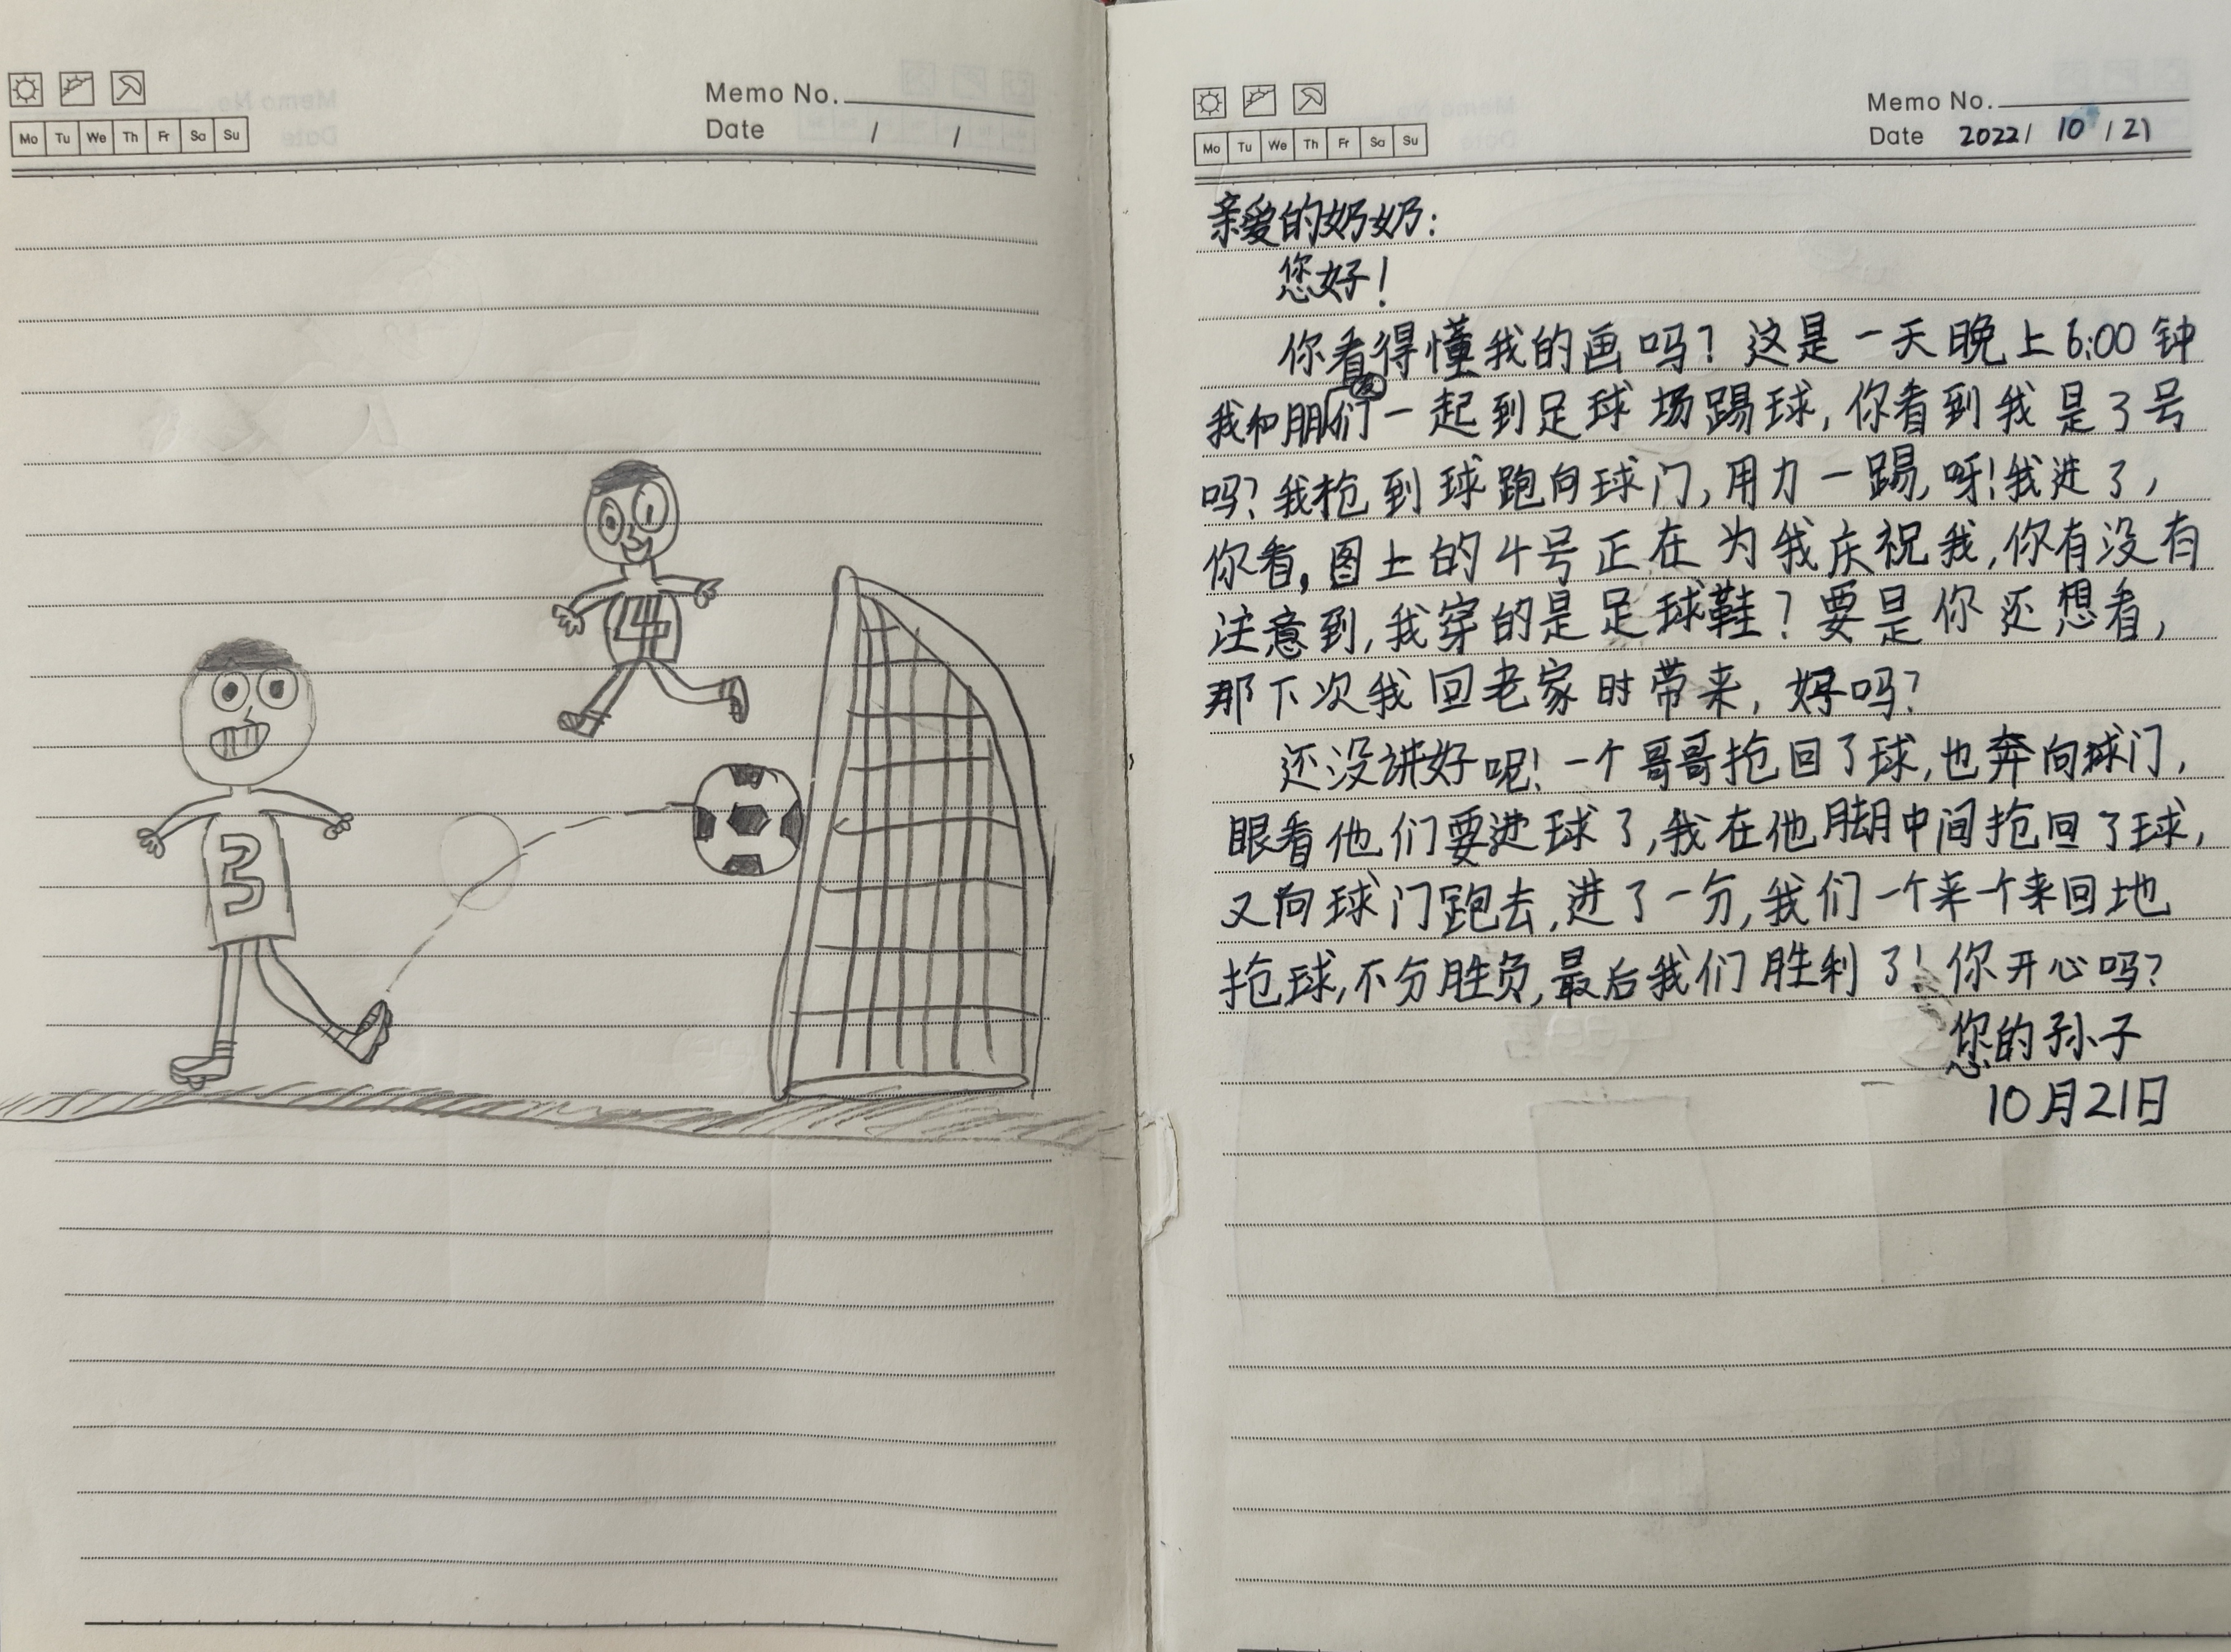 Memo No.
Mo Tu We Th Fr Sa Su
Date / /
4
3
Memo No.
Mo Tu We Th Fr Sa Su
Date 2022/ 10 / 21
亲爱的奶奶:
您好!
你看得懂我的画吗?这是一天晚上6:00钟
我和朋友们一起到足球场踢球,你看到我是3号
吗?我抢到球跑向球门,用力一踢,呀!我进了,
你看,图上的4号正在为我庆祝我,你有没有
注意到,我穿的是足球鞋?要是你还想看,
那下次我回老家时带来,好吗?
还没讲好呢!一个哥哥抢回了球,也奔向球门,
眼看他们要进球了,我在他脚中间抢回了球,
又向球门跑去,进了一分,我们一个来一个来回地
抢球,不分胜负,最后我们胜利了!你开心吗?
您的孙子
10月21日